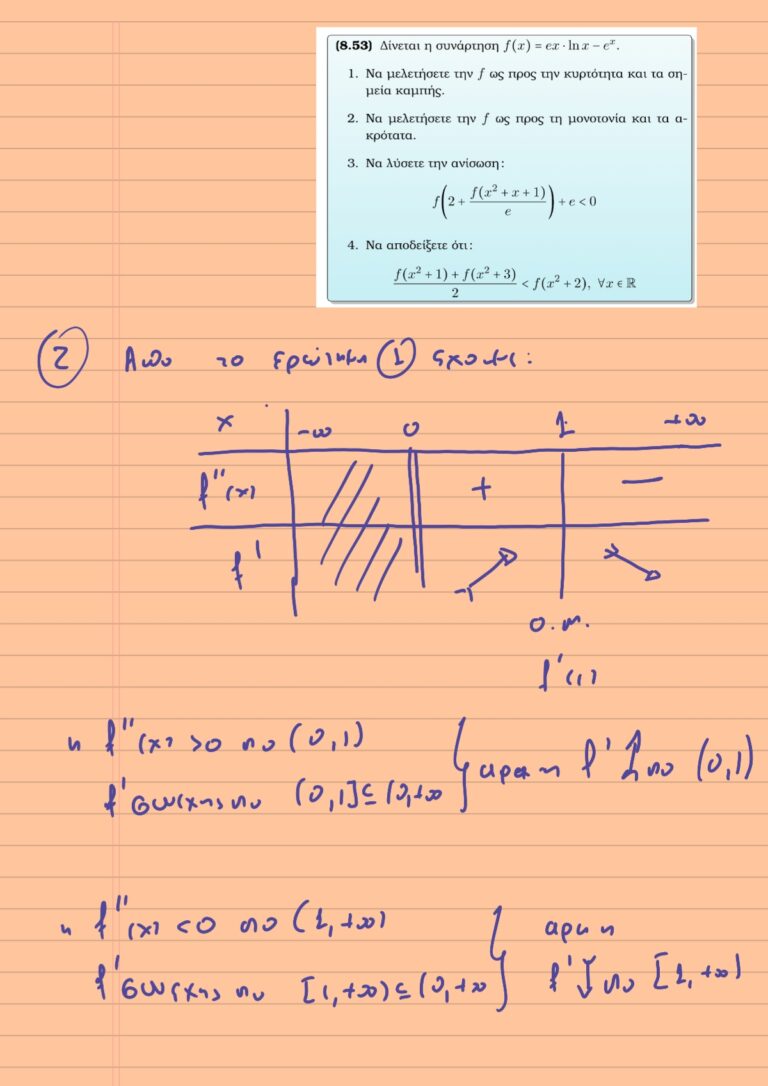 (8.53) Δίνεται η συνάρτηση f(x) = ex · ln x − e^x.
1. Να μελετήσετε την f ως προς την κυρτότητα και τα ση-
μεία καμπής.
2. Να μελετήσετε την f ως προς τη μονοτονία και τα α-
κρότατα.
3. Να λύσετε την ανίσωση:
f(2 + f(x² + x + 1)/e) + e < 0
4. Να αποδείξετε ότι:
(f(x² + 1) + f(x² + 3))/2 < f(x² + 2), ∀x ∈ ℝ
② Απο το ερώτημα ① εχουμε:
x -∞ 0 1 +∞
f''(x) + −
f' ↗ ↘
ο.μ.
f'(1)
η f''(x) >0 στο (0,1)
f' συνεχης στο (0,1] ⊆ (0,+∞
αρα η f' ↑ στο (0,1)
η f''(x) <0 στο (1,+∞)
f' συνεχης στο [1,+∞) ⊆ (0,+∞
αρα η
f' ↓ στο [1,+∞)